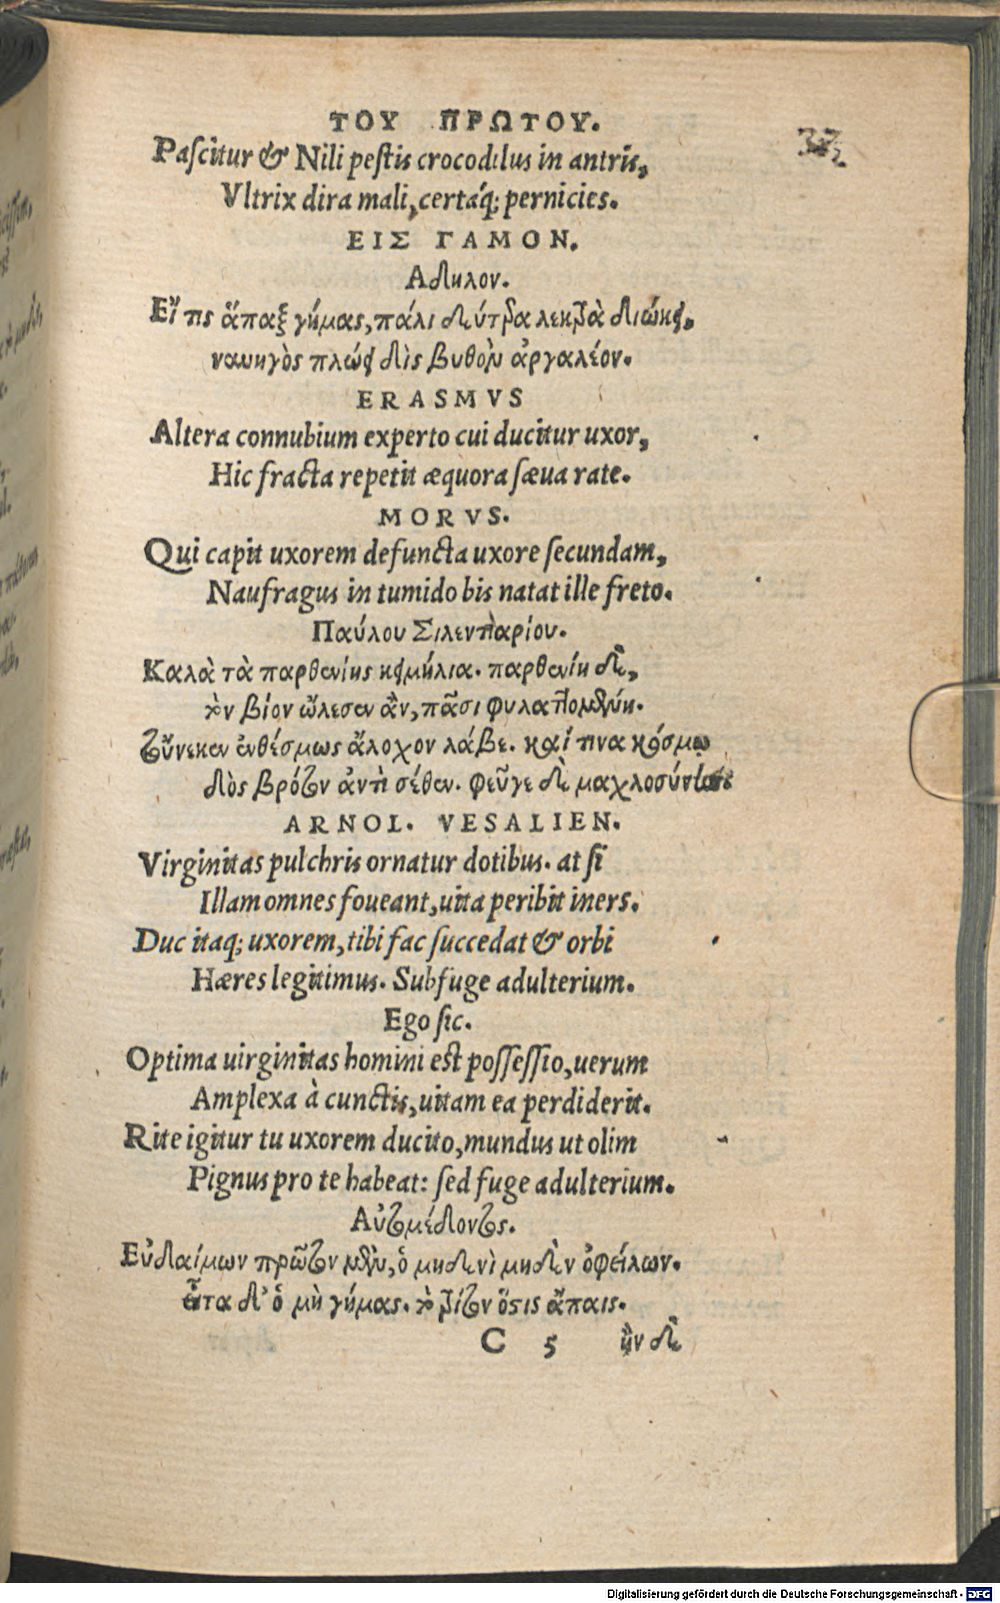 ΤΟΥ ΠΡΩΤΟΥ.
Paſcitur & Nili peſtis crocodilus in antris,
Vltrix dira mali, certáq; pernicies.
ΕΙΣ ΓΑΜΟΝ.
Αδηλον.
Εἴ τις ἅπαξ γήμας, πάλι δεύτερα λεκτρὰ διώκει,
ναυηγὸς πλώει δὶς βυθὸν ἀργαλέον.
ERASMVS
Altera connubium experto cui ducitur uxor,
Hic fracta repetit æquora ſæua rate.
MORVS.
Qui capit uxorem defuncta uxore ſecundam,
Naufragus in tumido bis natat ille freto.
Παύλου Σιλεντιαρίου.
Καλὰ τὰ παρθενίης κειμήλια. παρθενίη δὲ,
τὸν βίον ὤλεσεν ἂν, πᾶσι φυλαττομένη.
τοὔνεκεν ἐνθέσμως ἄλοχον λάβε. καί τινα κόσμῳ
δὸς βρότον ἀντὶ σέθεν. φεῦγε δὲ μαχλοσύνην
ARNOL. VESALIEN.
Virginitas pulchris ornatur dotibus. at ſi
Illam omnes foueant, uita peribit iners.
Duc itaq; uxorem, tibi fac ſuccedat & orbi
Hæres legitimus. Subfuge adulterium.
Ego ſic.
Optima uirginitas homini eſt poſſeſſio, uerum
Amplexa à cunctis, uitam ea perdiderit.
Rite igitur tu uxorem ducito, mundus ut olim
Pignus pro te habeat: ſed fuge adulterium.
Αὐτομέδοντος.
Εὐδαίμων πρῶτον μὲν, ὁ μηδενὶ μηδὲν ὀφείλων.
εἶτα δ' ὁ μὴ γήμας. τὸ τρίτον ὅστις ἄπαις.
C 5 ἢν δὲ
Digitalisierung gefördert durch die Deutsche Forschungsgemeinschaft - DFG